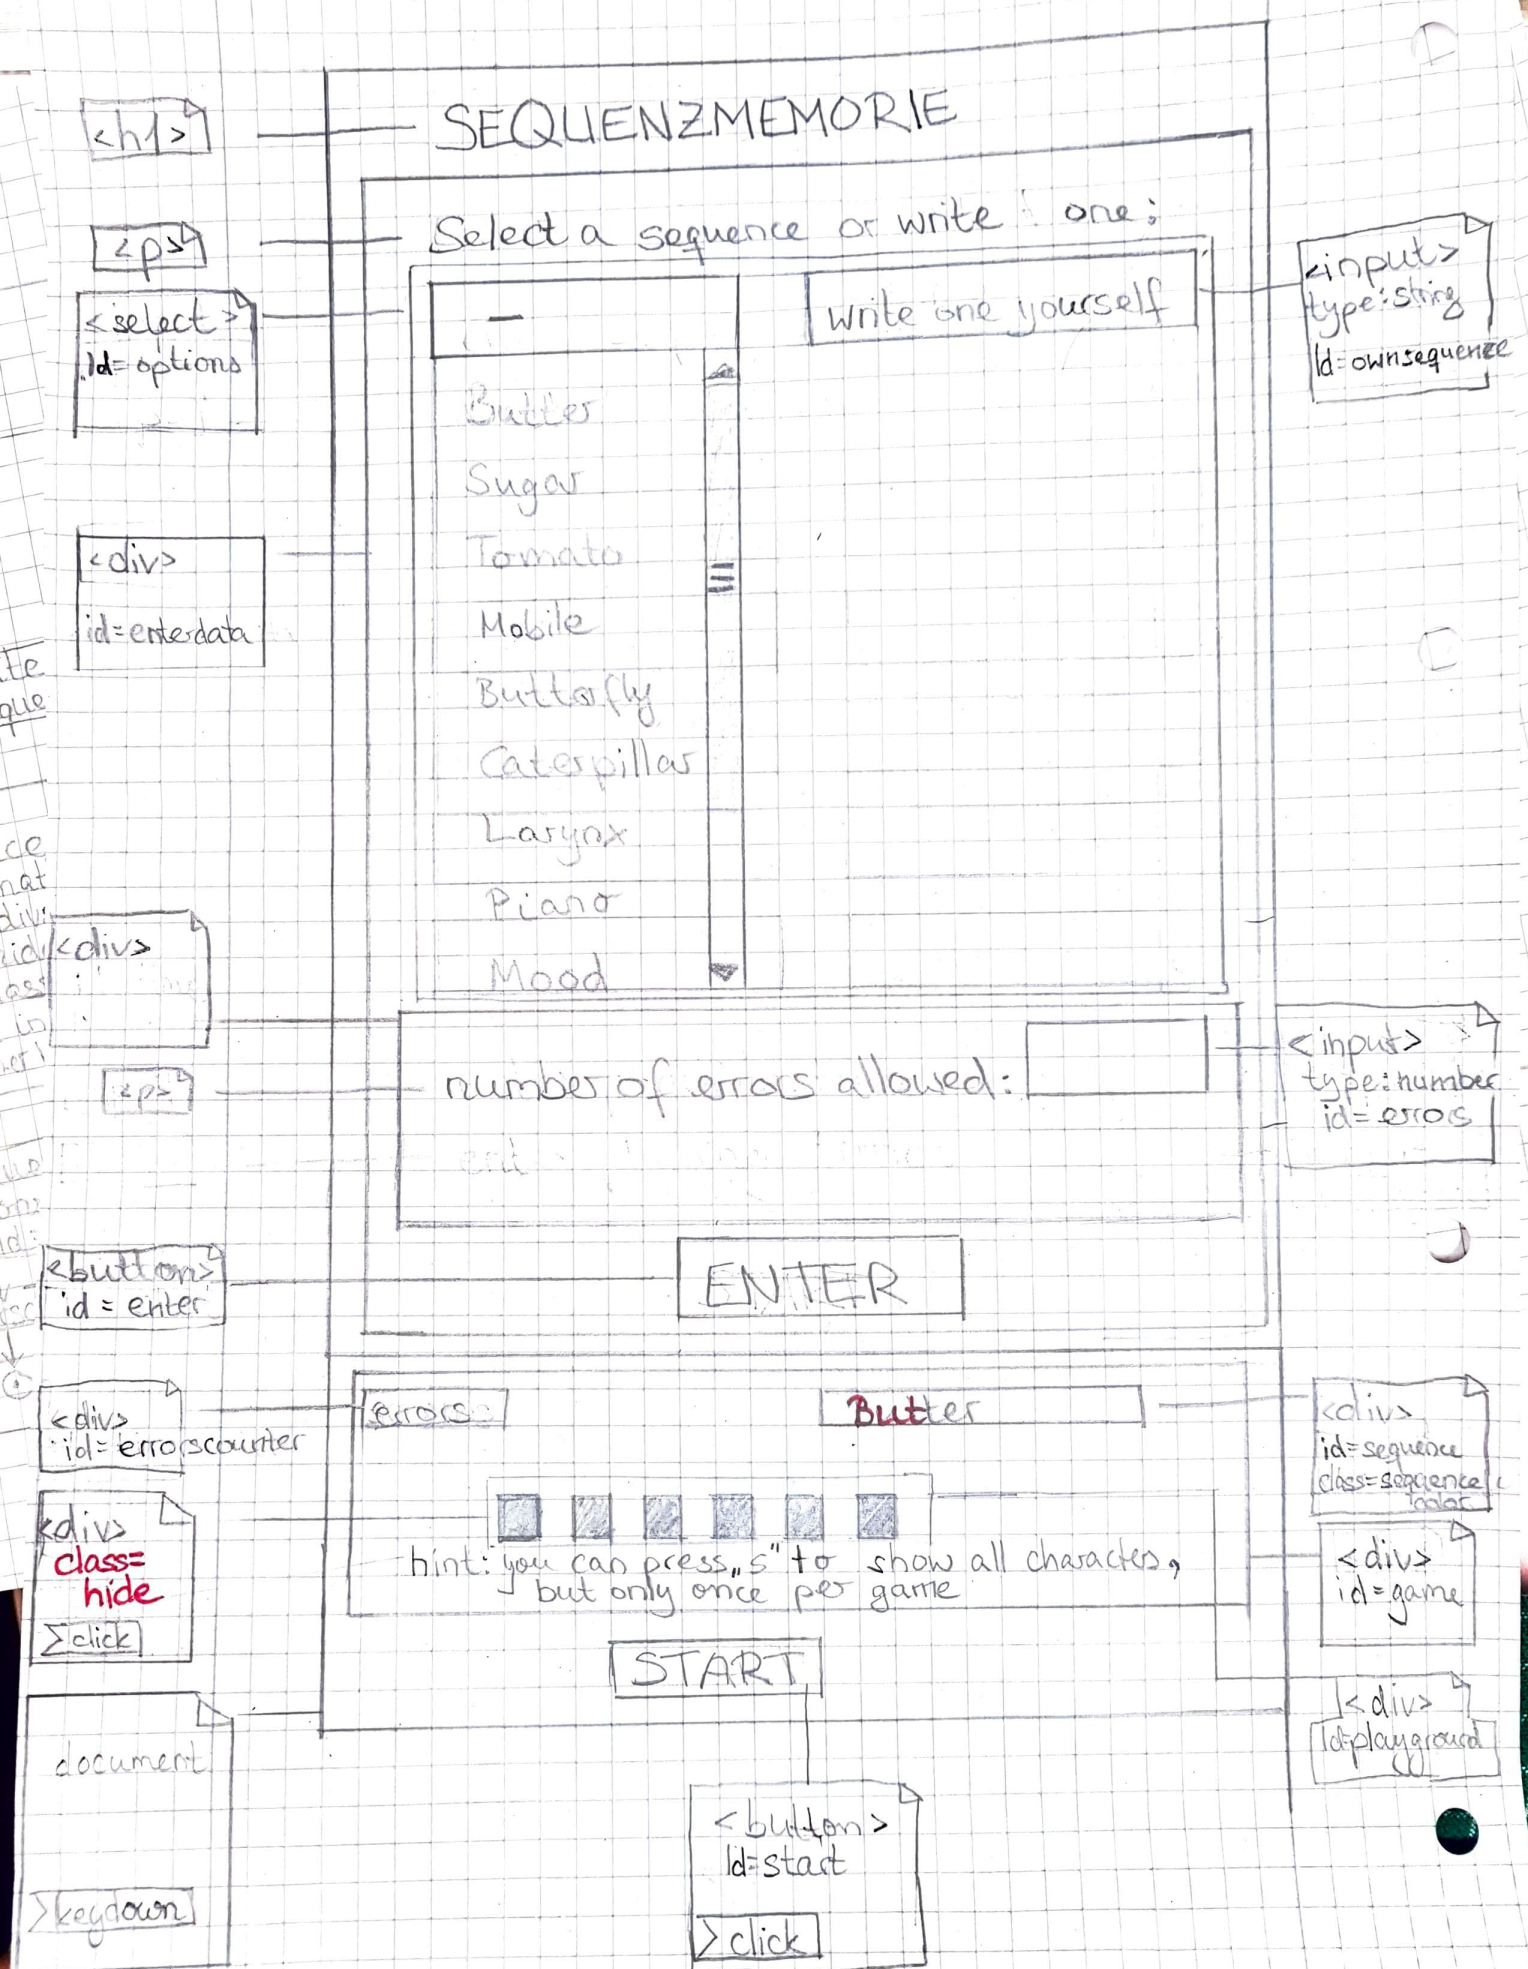 SEQUENZMEMORIE
<h1>
Select a sequence or write one:
<p>
<select>
Id=options
—
Write one yourself
<input>
type:string
Id=ownsequence
Butter
Sugar
Tomato
Mobile
Butterfly
Caterpillar
Larynx
Piano
Mood
<div>
id=enterdata
<div>
number of errors allowed:
<p>
<input>
type:number
id=errors
ENTER
<button>
id=enter
errors:
Butter
<div>
id=errorscounter
<div>
id=sequence
class=sequence
color
<div>
class=
hide
>click
hint: you can press „s" to show all characters,
but only once per game
<div>
id=game
START
<div>
Id=playground
document
>keydown
<button>
Id=start
>click